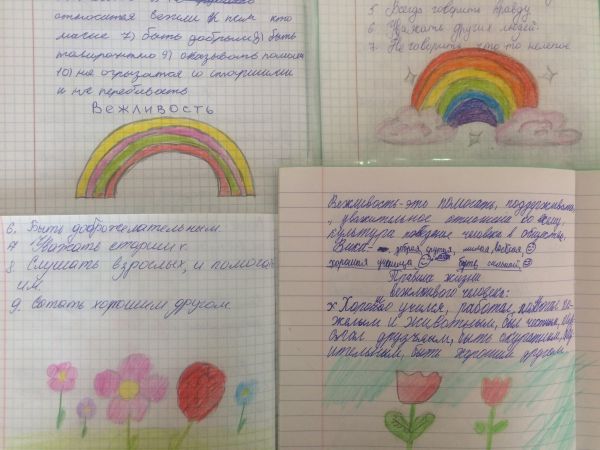 относится вежливо к
младшие 7) быть добрым 8) быть
толирантно 9) оказывать помощь
10) не огрызатся со старшими
и не перебивать
Вежливость
5 Всегда говорить правду
6 Уважать других людей.
7. Не говорить что то нелепое
6. Быть доброжелательным.
7 Уважать старших.
8 Слушать взрослых, и помогать
им.
9. Стать хорошим другом.
Вежливость-это помогать, поддерживать,
уважительное отношение ко всему,
культура поведение человека в обществе.
Вика добрая, милая,
хорошая ученица быть сильной,
Правила жизни
вежливого человека:
х Хорошо учился, работал,
и животным, был честным,
друзьям, быть
быть хорошим другом.